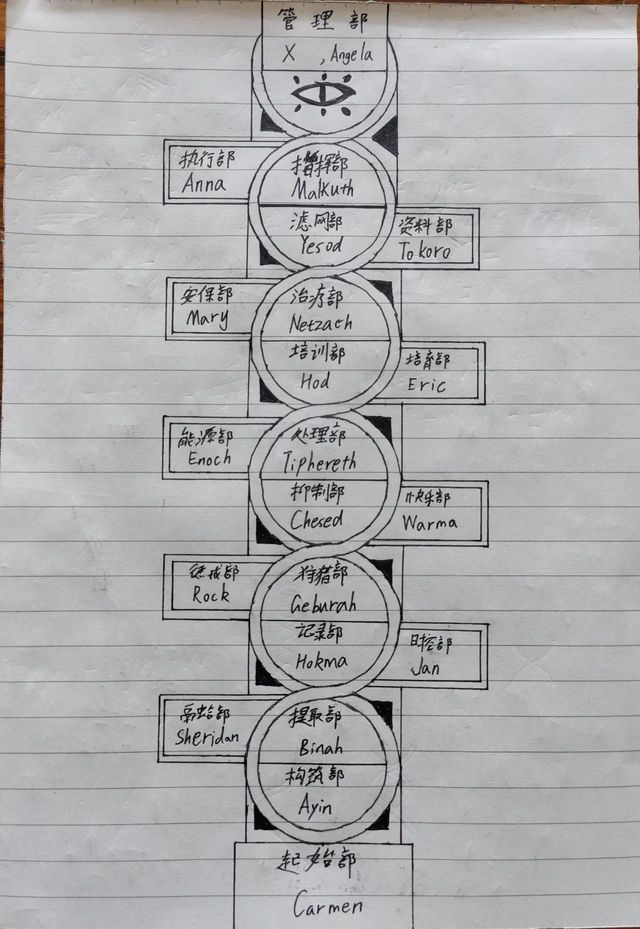 管理部
X , Angela
执行部
Anna
Malkuth
滤网部
Yesod
资料部
Tokoro
安保部
Mary
治疗部
Netzach
培训部
Hod
培育部
Eric
能源部
Enoch
处理部
Tiphereth
抑制部
Chesed
快乐部
Warma
惩戒部
Rock
狩猎部
Geburah
记录部
Hokma
Jan
Sheridan
提取部
Binah
构筑部
Ayin
起始部
Carmen